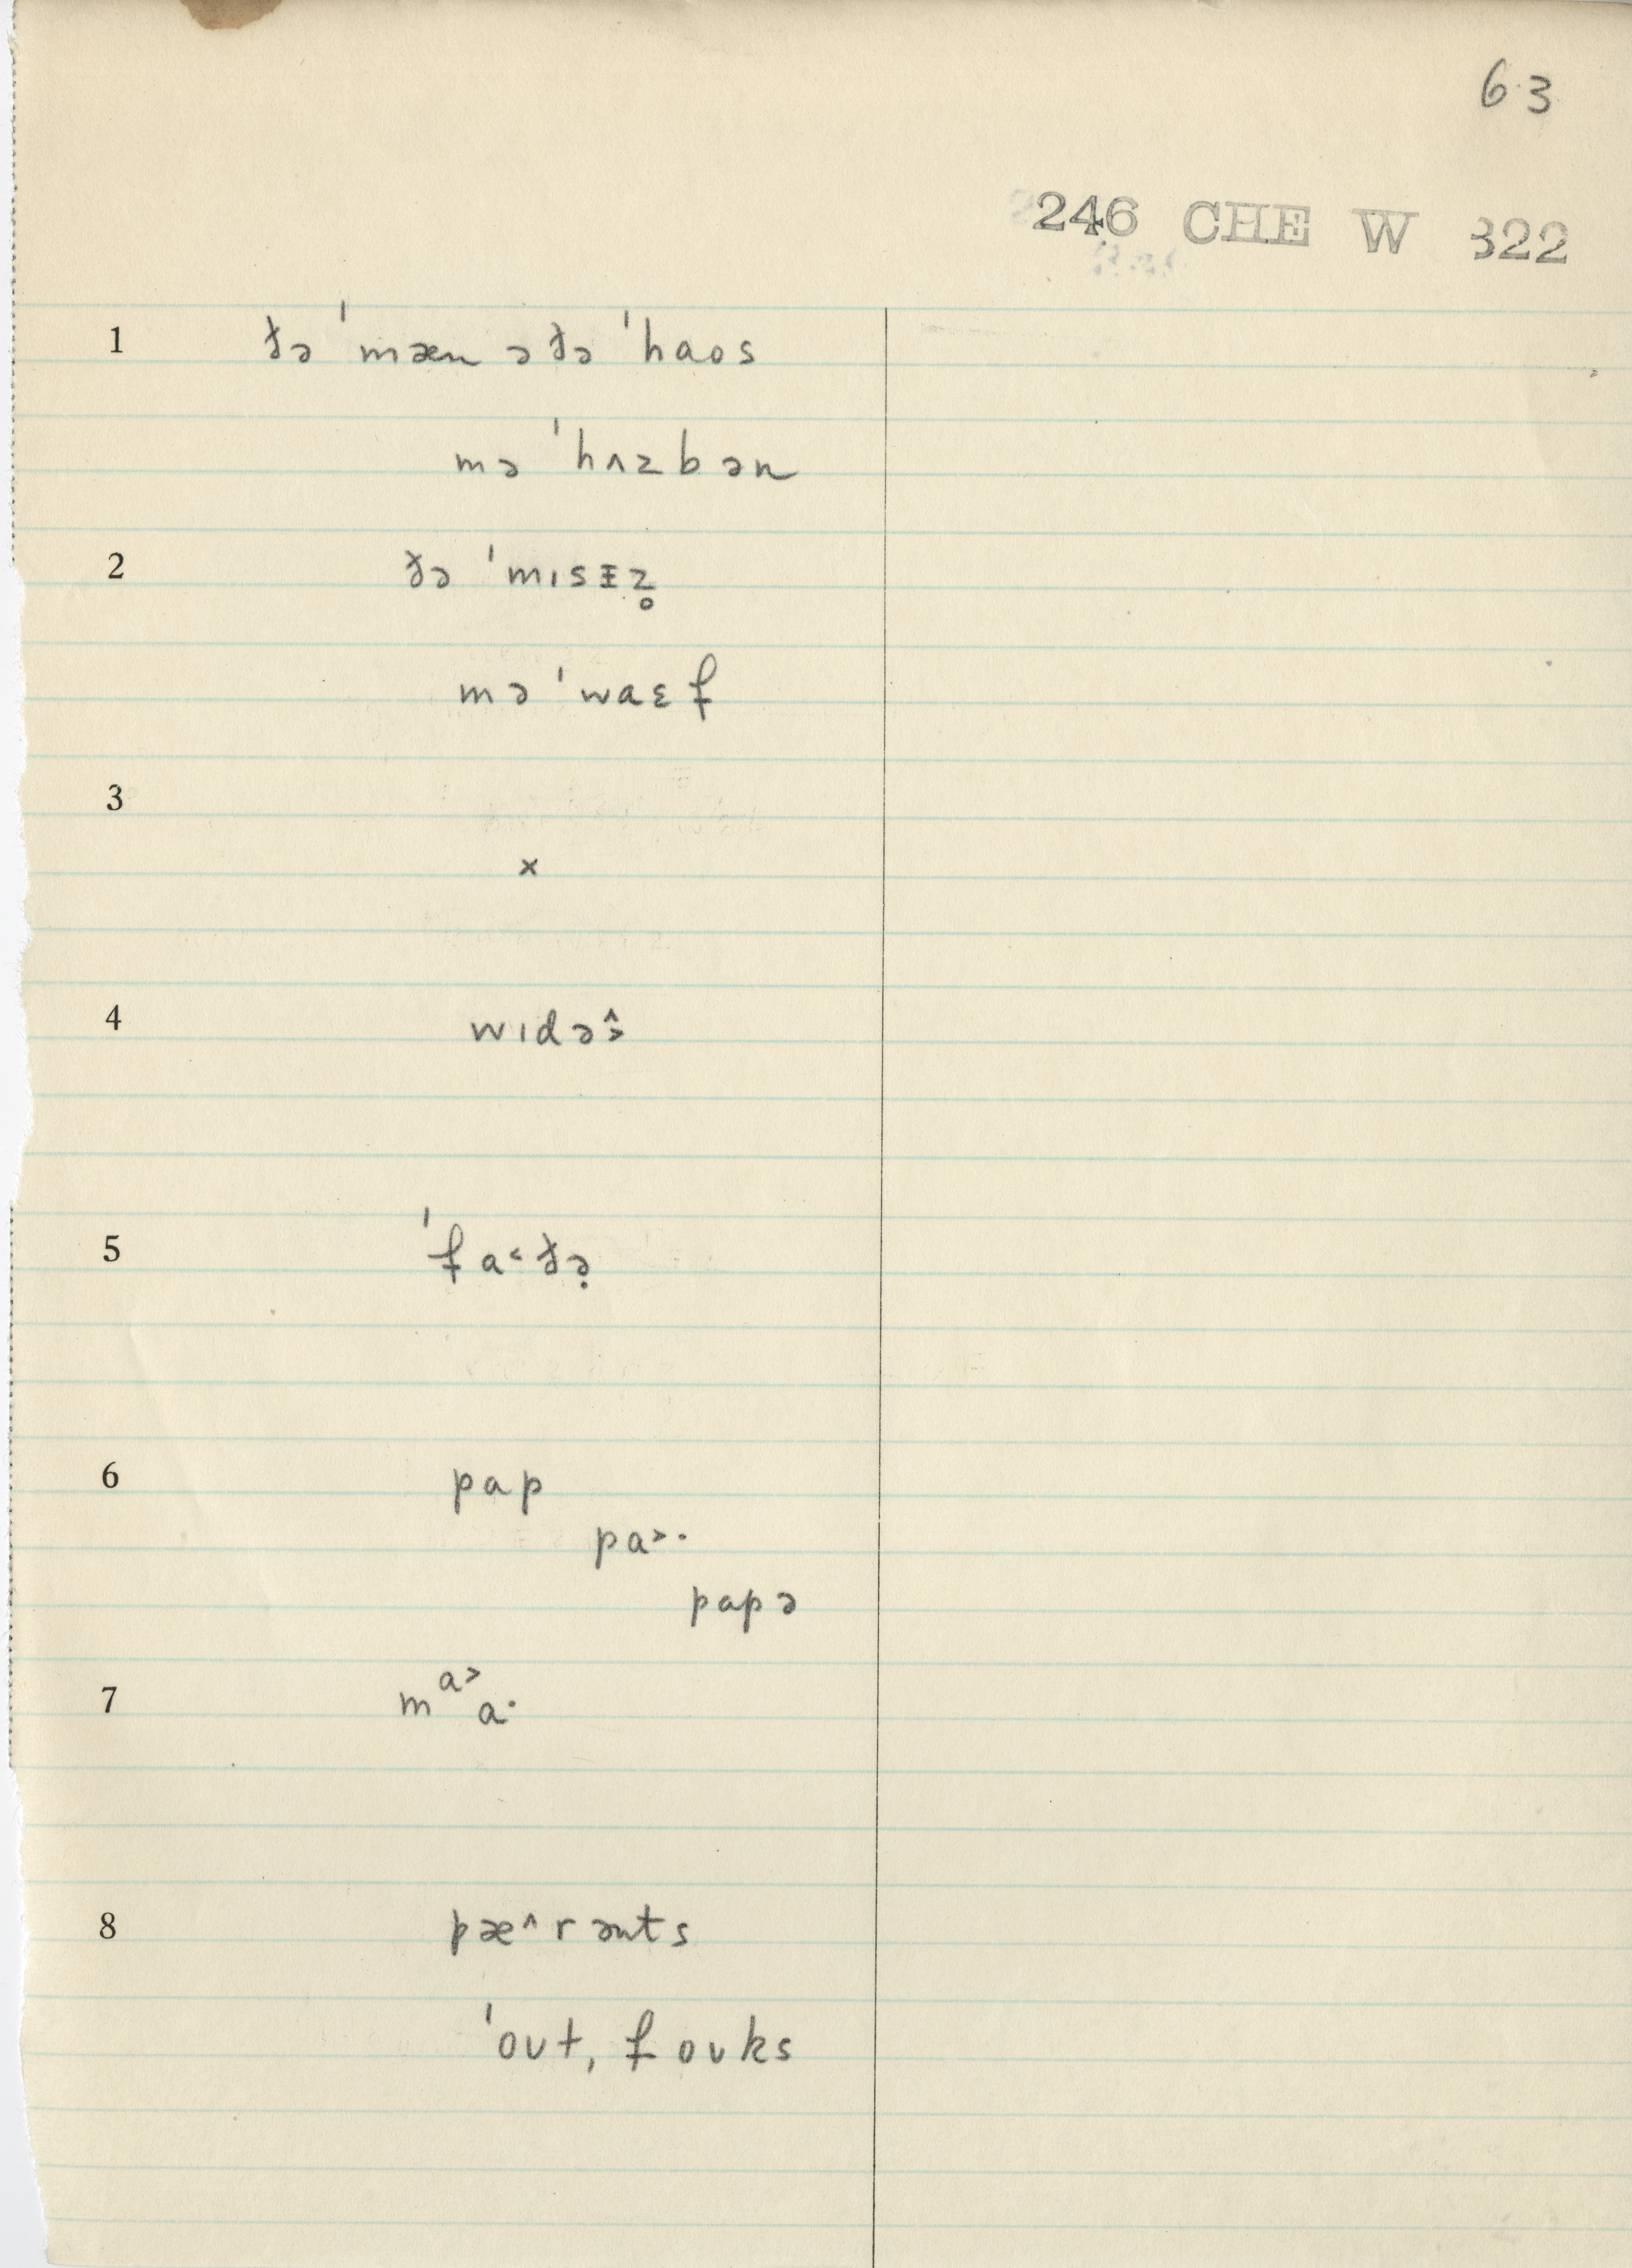 63
246 CHE W 322
1 ðə ˈmæn ə ðə ˈhaos
mə ˈhʌzbən
2 ðə ˈmɪsᵻz̥
mə ˈwaɛf
3
×
4 wɪdə˄˃
5 ˈfa˂ðə̣
6 pap
pa˃·
papə
7 m a˃ a·
8 pæ˄rənts
ˈoʊt, foʊks